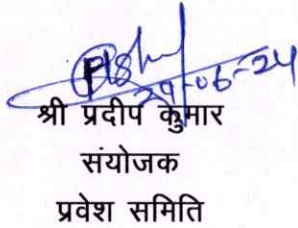 29-06-24
श्री प्रदीप कुमार
संयोजक
प्रवेश समिति